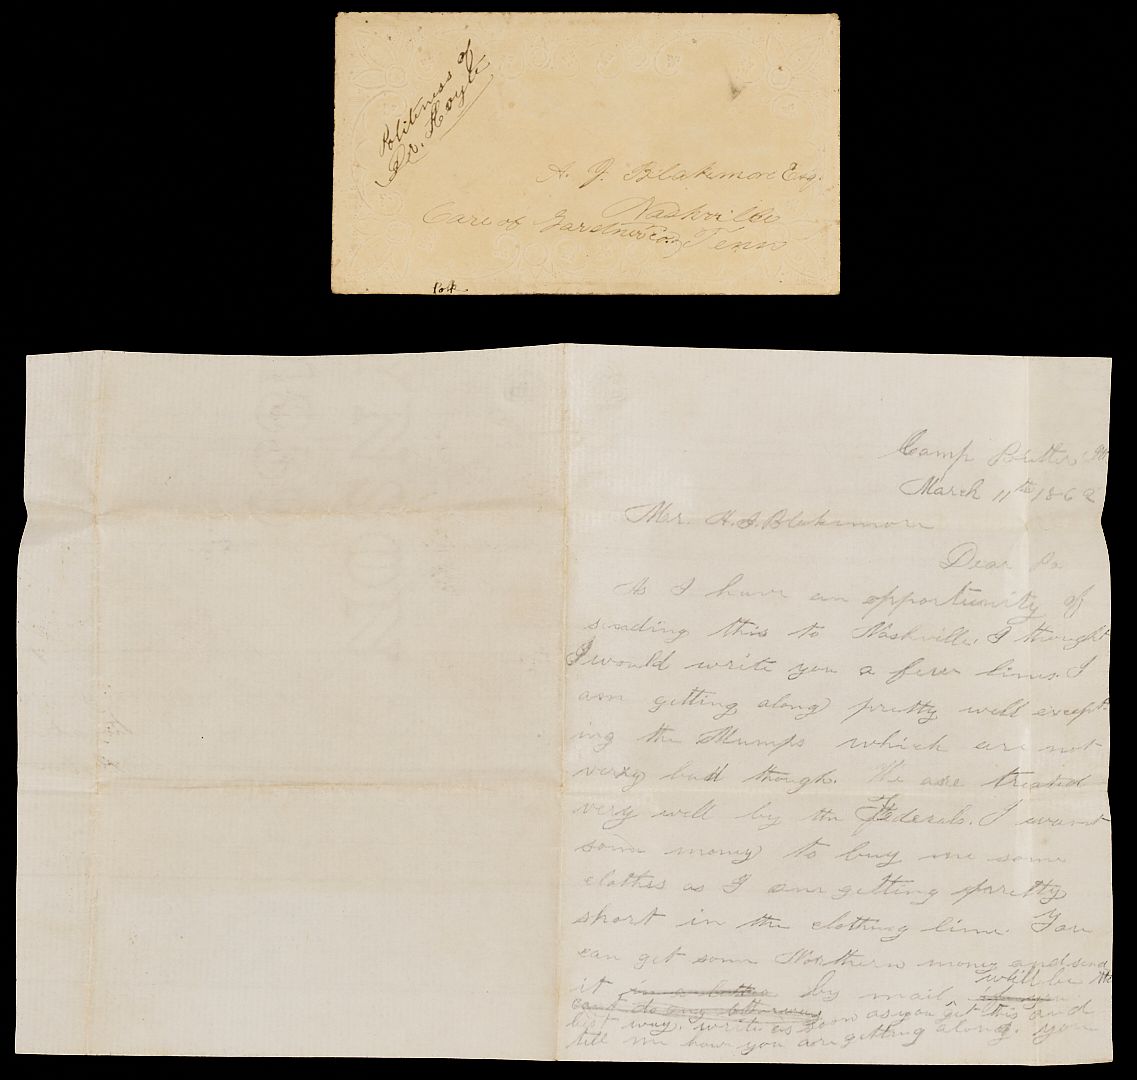 Politeness of
Dr. Hoyle
A. J. Blakemore Esq.
Nashville
Care of Gardner & Co Tenn
Polk
Camp
March 11th 1862
Mr. A. J. Blakemore
Dear Pa
As I have an opportunity of
sending this to Nashville. I thought
I would write you a few lines. I
am getting along pretty well except
ing the Mumps which are not
very bad though. We are treated
very well by the Federals. I want
some money to buy me some
clothes as I am getting pretty
short in the clothing line. You
can get some Northern money and send
it in a letter by mail, if you will be the
cant do any better way
best way. write as soon as you get this and
tell me how you are getting along. you